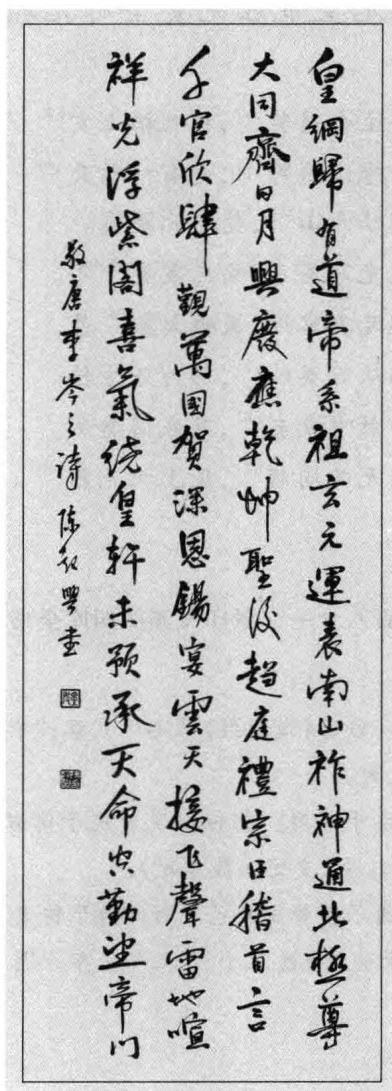 皇綱歸有道帝系祖玄元運表南山祚神通北極尊
大同齊日月興廢應乾坤聖後趨庭禮宗臣稽首言
千官欣肆覲萬國賀深恩錫宴雲天接飛聲雷地喧
祥光浮紫閣喜氣繞皇軒未預承天命空勤望帝門
敬唐李岑之詩 陳興書